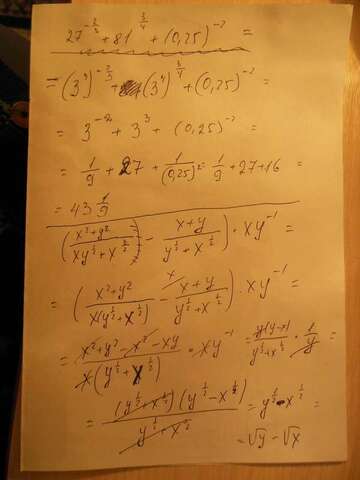 27^{-2/3} + 81^{3/4} + (0,25)^{-2} =
= (3^3)^{-2/3} + (3^4)^{3/4} + (0,25)^{-2} =
= 3^{-2} + 3^3 + (0,25)^{-2} =
= 1/9 + 27 + 1/(0,25)^2 = 1/9 + 27 + 16 =
= 43 1/9
((x²+y²)/(xy^{1/2}+x^{3/2}) - (x+y)/(y^{1/2}+x^{1/2})) · xy^{-1} =
= ((x²+y²)/(x(y^{1/2}+x^{1/2})) - (x+y)/(y^{1/2}+x^{1/2})) · xy^{-1} =
= (x²+y²-x²-xy)/(x(y^{1/2}+x^{1/2})) · xy^{-1} = y(y-x)/(y^{1/2}+x^{1/2}) · 1/y =
= (y^{1/2}+x^{1/2})(y^{1/2}-x^{1/2})/(y^{1/2}+x^{1/2}) = y^{1/2} - x^{1/2} =
= √y - √x